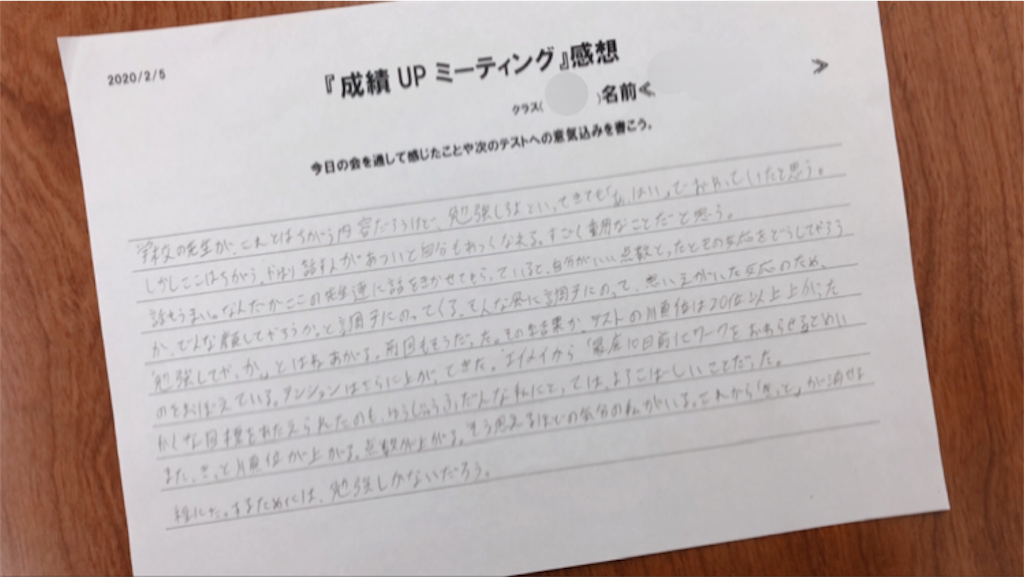 2020/2/5
『成績UPミーティング』感想
クラス( )名前< >
今日の会を通して感じたことや次のテストへの意気込みを書こう。
学校の先生が、これとはちがう内容だろうけど、勉強しろよといってきても「はい。」で おわっていたと思う。
しかしここはちがう。やはり話す人があついと自分もあつくなれる。すごく重要なことだと思う。
話もうまい。なんだかここの先生達に話をきかせてもらっていると、自分がいい点数とったときの反応をどうしてやろう
か、どんな顔してやろうか、と調子にのってくる。そんな風に調子にのって、思い上がった反応のため、
勉強してやっか。とはねあがる。前回もそうだった。その結果が、テストの順位は20位以上上がった
のをおぼえている。テンションはさらに上がってきた。エイメイから「最低10日前にワークをおわらせる」とめい
かくな目標をあたえられたのも、ゆうじゅうふだんな私にとっては、よろこばしいことだった。
また、きっと順位が上がる。点数が上がる。そう思えるほどの気分の私がいる。これから「きっと」が消せる
様にだ。するためには、勉強しかないだろう。